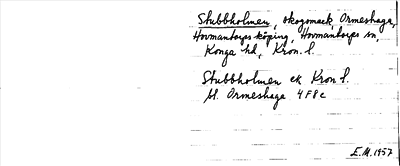 Stubbholmen, skogsmark, Ormeshaga,
Hovmantorps köping, Hovmantorps sn,
Konga hd, Kron. l.
Stubbholmen ek Kron l.
bl. Ormeshaga 4F8c
E.M. 1957